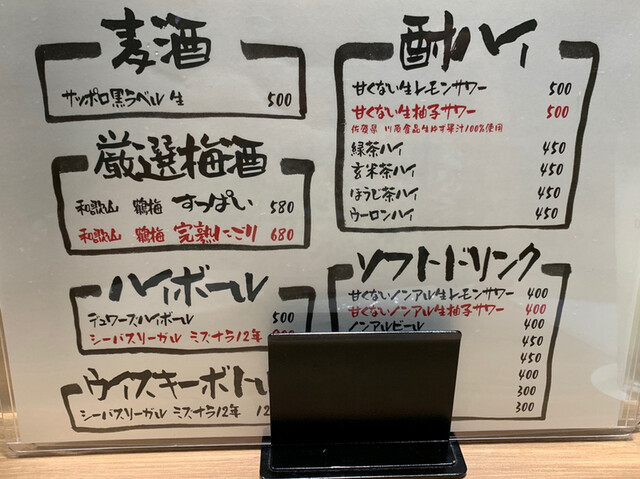 麦酒
サッポロ黒ラベル 生 500
厳選梅酒
和歌山 鶴梅 すっぱい 580
和歌山 鶴梅 完熟にごり 680
ハイボール
デュワーズハイボール 500
シーバスリーガル ミズナラ12年
ウイスキーボトル
シーバスリーガル ミズナラ12年
酎ハイ
甘くない生レモンサワー 500
甘くない生柚子サワー 500
佐賀県 川原食品生ゆず果汁100%使用
緑茶ハイ 450
玄米茶ハイ 450
ほうじ茶ハイ 450
ウーロンハイ 450
ソフトドリンク
甘くないノンアル生レモンサワー 400
甘くないノンアル生柚子サワー 400
ノンアルビール 400
450
450
400
300
300